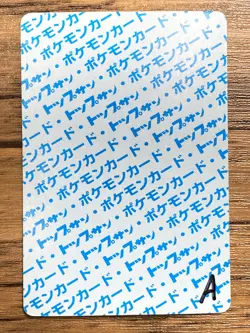 ポケモンカード・
トップサン・ポケモンカード・
ポケモンカード・トップサン・
トップサン・ポケモンカード・
ポケモンカード・トップサン・
トップサン・ポケモンカード・
ポケモンカード・トップサン・
トップサン・ポケモンカード・
ポケモンカード・トップサン・
トップサン・ポケモンカード・
ポケモンカード・トップサン・
トップサン・ポケモンカード・
ポケモンカード・
A